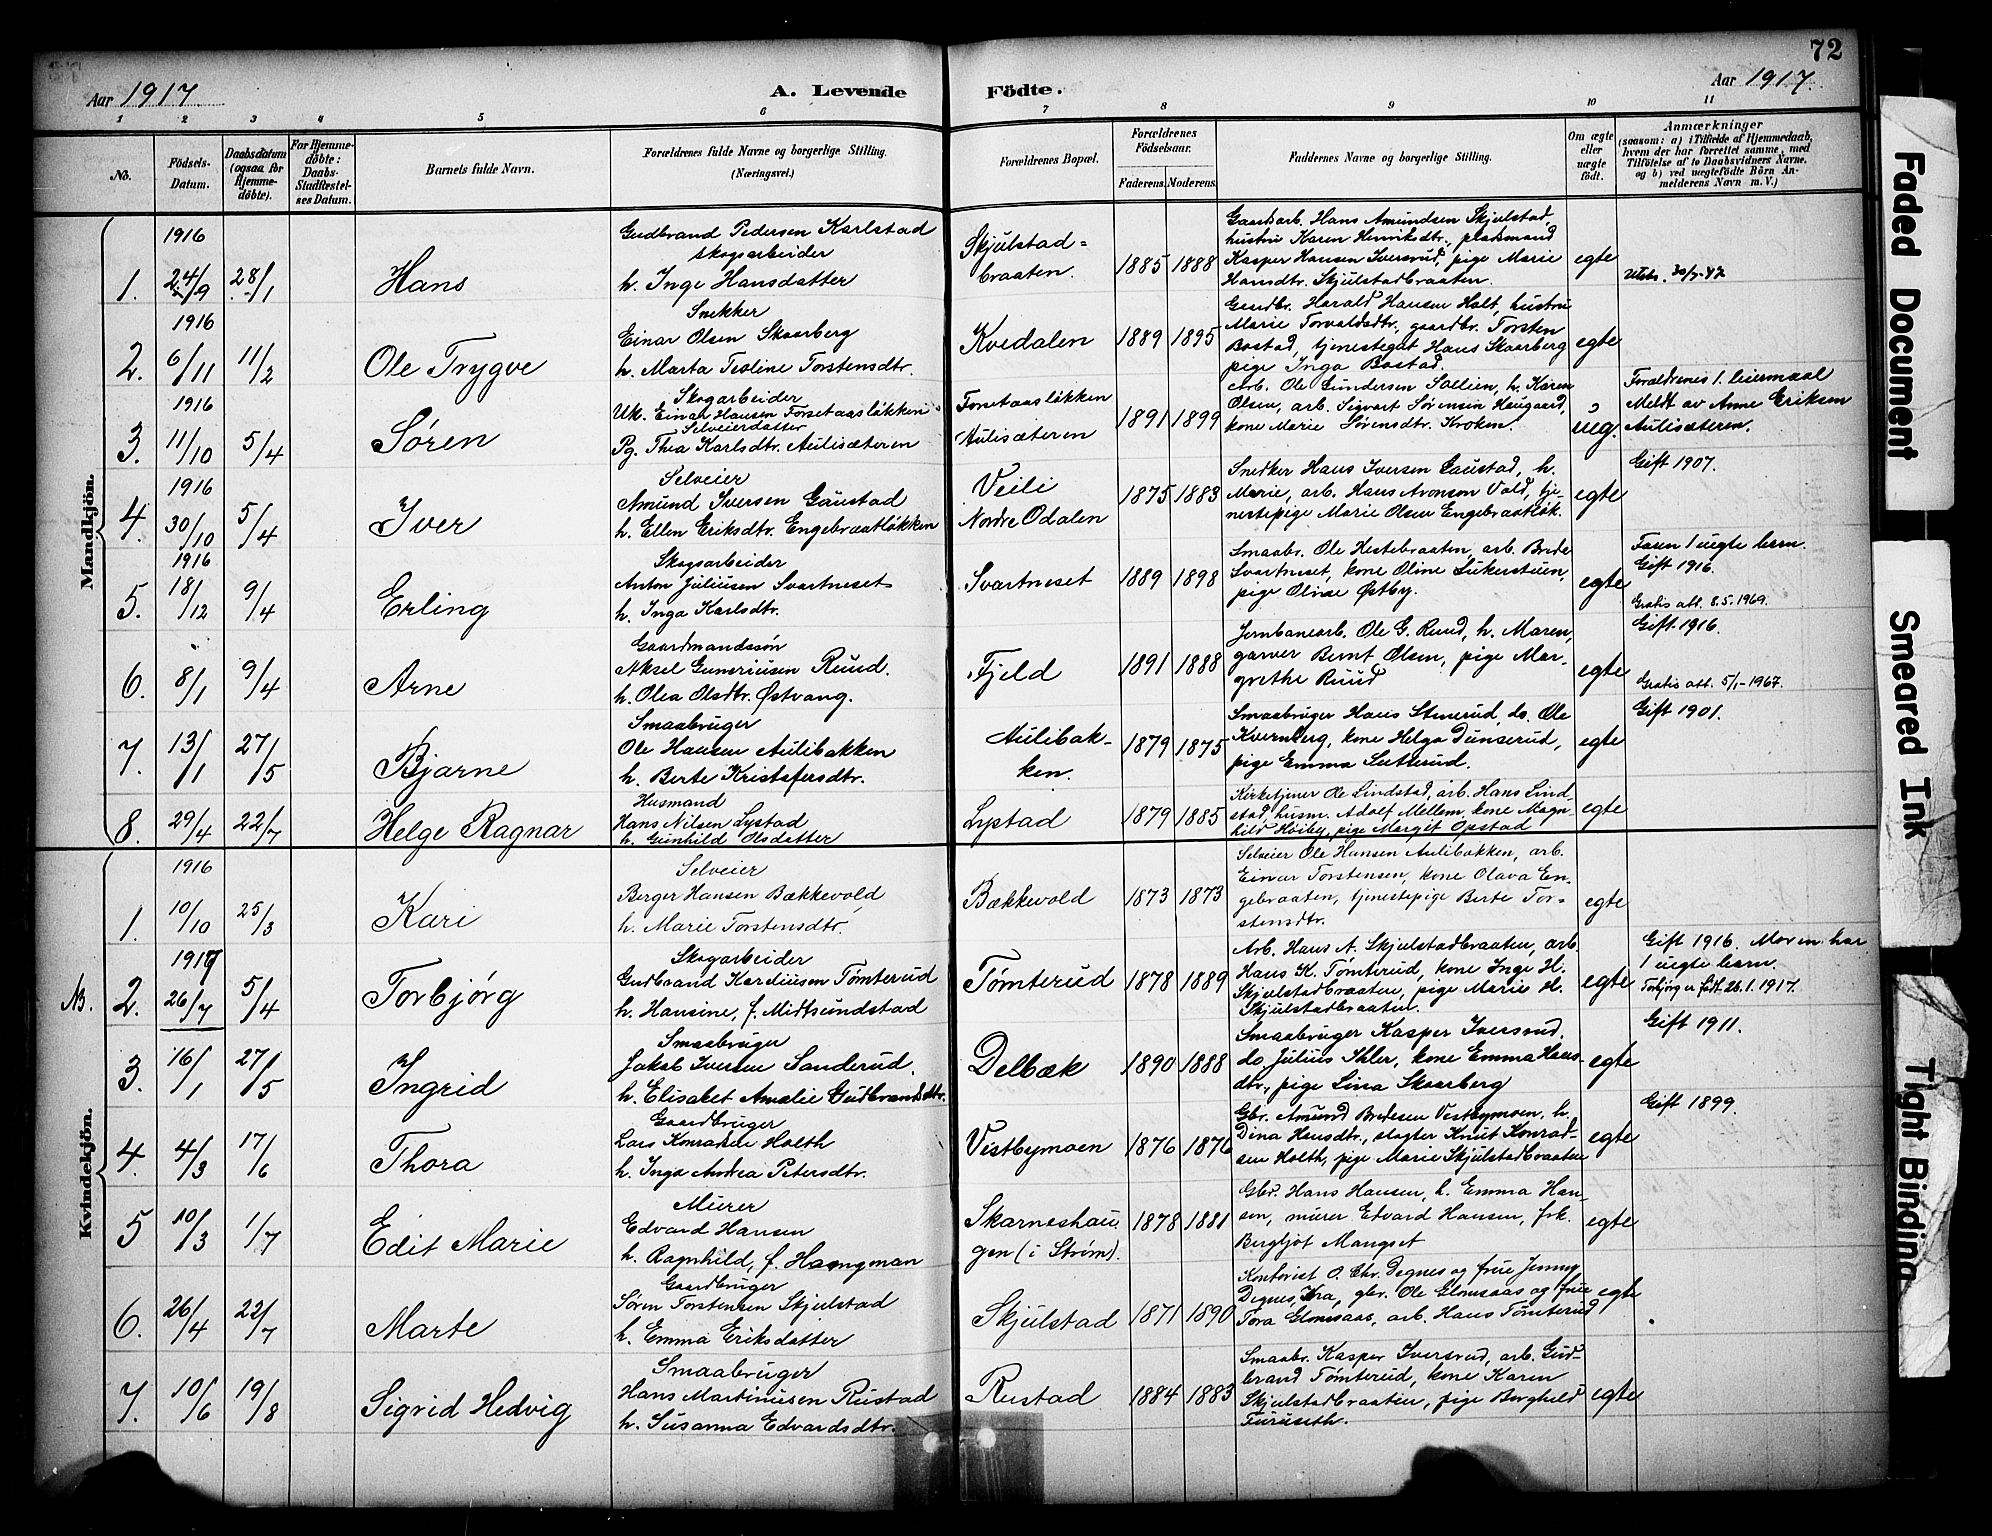 72
Aar 1917
A. Levende Födte.
Aar 1917.
1 2 3 4 5 6 7 8 9 10 11
No.
Födsels-Datum.
Daabsdatum (ogsaa for Hjemme-döbte).
For Hjemme-döbte: Daabs-Stadfæstel-ses Datum.
Barnets fulde Navn.
Forældrenes fulde Navne og borgerlige Stilling.
(Næringsvei.)
Forældrenes Bopæl.
Forældrenes Födselsaar.
Faderens. Moderens.
Faddernes Navne og borgerlige Stilling.
Om ægte eller uægte födt.
Anmærkninger
(saasom: a) i Tilfælde af Hjemmedaab,
hvem der har forrettet samme, med
Tilföielse af to Daabsvidners Navne,
og b) ved uægtefödte Börn An-
melderens Navn m. V.)
Mandkjön.
1.
1916
24/9
28/1
Hans
Gudbrand Pedersen Karlstad
skogsarbeider
h. Inge Hansdatter
Skjulstad=
braaten.
1885 1888
Gaardarb. Hans Amundsen Skjulstad,
hustru Karen Henriksdtr., pladsmand
Kasper Hansen Iversrud, pige Marie
Hansdtr. Skjulstadbraaten.
egte
2.
1916
6/11
11/2
Ole Trygve
Snekker
Einar Olsen Skaarberg
h. Marta Teoline Torstensdtr.
Kvedalen
1889 1895
Gaardbr. Harald Hansen Holt, hustru
Marie Torvaldsdtr, gaardbr. Torsten
Bostad, tjenestegut Hans Skaarberg
pige Inga Bostad.
egte
3.
1916
11/10
5/4
Søren
Skogarbeider
Uk. Einar Hansen Forsetaasløkken
Selveierdatter
Pg. Thea Karlsdtr. Aulisæteren
Forsetaasløkken
Aulisæteren
1891 1899
Arb. Ole Gundersen Sollien, h. Karen
Olsen, arb. Sigvart Sørensen Haugaard,
kone Marie Sørensdtr. Kroken.
ueg.
Forældrenes 1. leiermaal
Meldt av Anne Eriksen
Aulisæteren.
4.
1916
30/10
5/4
Iver
Selveier
Amund Iversen Gaustad
h. Ellen Eriksdtr. Engebraatløkken
Veili
Nordre Odalen
1875 1883
Snedker Hans Iversen Gaustad, h.
Marie, arb. Hans Aronson Vold, tje-
nestepige Marie Olsen Engebraatløk.
egte
Gift 1907.
5.
1916
18/12
9/4
Erling
Skogsarbeider
Anton Juliusen Svartneset
h. Inga Karlsdtr.
Svartneset
1889 1898
Smaabr. Ole Hestebraaten, arb. Brede
Svartneset, kone Oline Lukerstuen,
pige Olive Østby.
egte
Faren 1 uegte barn.
Gift 1916.
Gratis att. 8.5.1969.
6.
8/1
9/4
Arne
Gaardmandssøn
Aksel Guneriusen Ruud.
h. Olea Olsdtr. Østvang.
Fjeld
1891 1888
Jernbanearb. Ole G. Ruud, h. Maren,
garver Bernt Olsen, pige Mar-
grethe Ruud
egte
Gift 1916.
Gratis att. 5/1-1967.
7.
13/1
27/5
Bjarne
Smaabruger
Ole Hansen Aulibakken
h. Berte Kristofersdtr.
Aulibak-
ken.
1879 1875
Smaabruger Hans Stuerud, do. Ole
Kvernberg, kone Helga Dunserud,
pige Emma Sæterud.
egte
Gift 1901.
8.
29/4
22/7
Helge Ragnar
Husmand
Hans Nilsen Lystad
h. Gunhild Olsdatter
Lystad
1879 1885
Kirketjener Ole Lindstad, arb. Hans Lind
stad, husm. Adolf Mellem, kone Magn-
hild Høiby, pige Margit Opstad
egte
Kvindekjön.
1.
1916
10/10
25/3
Kari
Selveier
Berger Hansen Bækkevold
h. Marie Torstensdtr.
Bækkevold
1873 1873
Selveier Ole Hansen Aulibakken, arb.
Einar Torstensen, kone Olava En-
gebraaten, tjenestepige Berte Tor-
stensdtr.
egte
NB.
2.
1917
26/7
5/4
Torbjørg
Skogarbeider
Gudbrand Kardiusen Tømterud
h. Hansine, f. Midtsundstad
Tømterud
1878 1889
Arb. Hans A. Skjulstadbraaten, arb.
Hans K. Tømterud, kone Inge H.
Skjulstadbraaten, pige Marie H.
Skjulstadbraaten.
egte
Gift 1916. Moren har
1 uegte barn.
Torbjørg er født 26.1.1917.
3.
16/1
27/5
Ingrid
Smaabruger
Jakob Iversen Sanderud.
h. Elisabet Amalie Gudbrandsdtr.
Delbæk
1890 1888
Smaabruger Kasper Iversrud,
do Julius Ihler, kone Emma Hans-
dtr., pige Lina Skaarberg
egte
Gift 1911.
4.
4/3
17/6
Thora
Gaardbruger
Lars Konradsen Holth
h. Inga Andrea Petersdtr.
Vestbymoen
1876 1876
Gbr. Amund Bredesen Vestbymoen, h.
Dina Hansdtr., slagter Knut Konrad-
sen Holth, pige Marie Skjulstadbraaten
egte
Gift 1899.
5
10/3
1/7
Edit Marie
Murer
Edvard Hansen
h. Ragnhild, f. Haangman
Skarneshau
gen (i Strøm).
1878 1881
Gbr. Hans Hansen, h. Emma Han-
sen, murer Edvard Hansen, frk.
Bergljot Mangset
egte
6.
26/4
22/7
Marte
Gaardbruger
Søren Torstensen Skjulstad
h. Emma Eriksdatter
Skjulstad
1871 1890
Kontorist O. Chr. Degnes og frue Jenny
Degnes, Kra, gbr. Ole Glomsaas og frue
Tora Glomsaas, arb. Hans Tømterud
egte
7.
10/6
19/8
Sigrid Hedvig
Smaabruger
Hans Martiniusen Rustad
h. Susanna Edvardsdtr.
Rustad
1884 1883
Smaabr. Kasper Iversrud, arb. Gud-
brand Tømterud, kone Karen
Skjulstadbraaten, pige Borghild
Furuseth.
egte
Faded Document
Smeared Ink
Tight Binding